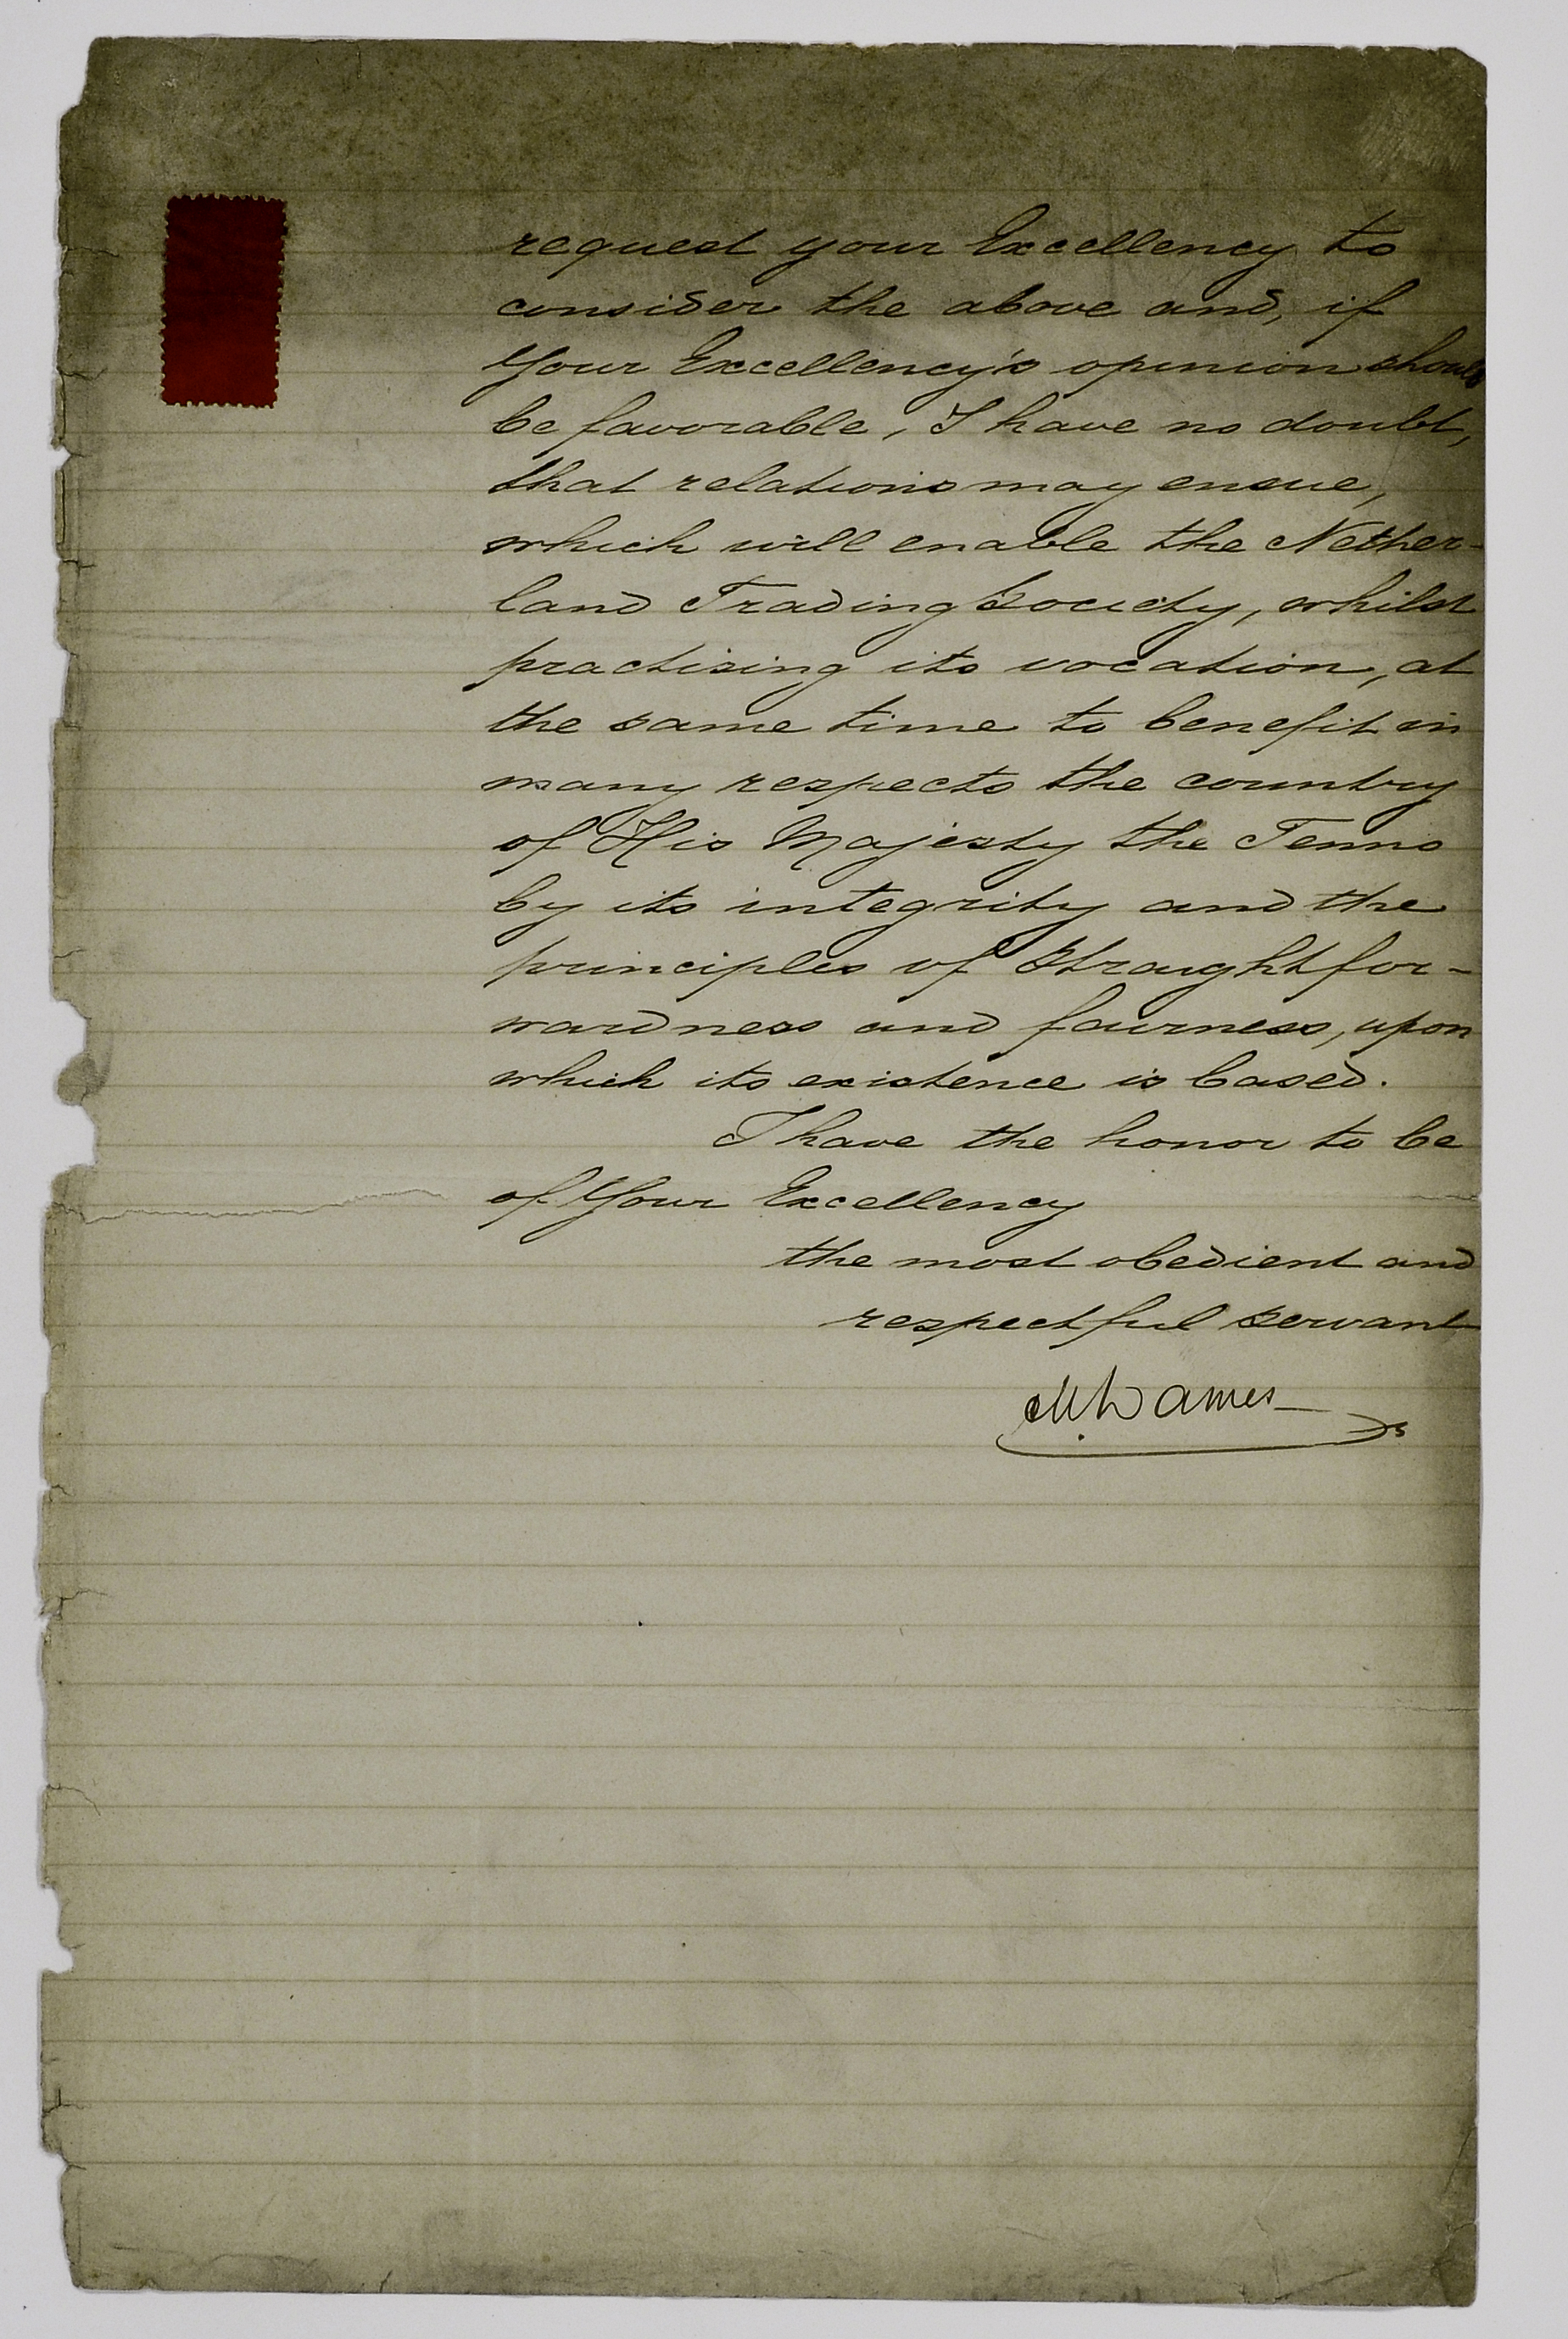 request your Excellency to
consider the above and, if
Your Excellency's opinion should
be favorable, I have no doubt,
that relations may ensue,
which will enable the Nether-
land Trading Society, whilst
practising its vocation, at
the same time to benefit in
many respects the country
of His Majesty the Tenno
by its integrity and the
principles of Straughtfor-
wardness and fairness, upon
which its existence is based.
I have the honor to be
of Your Excellency
the most obedient and
respectful servant